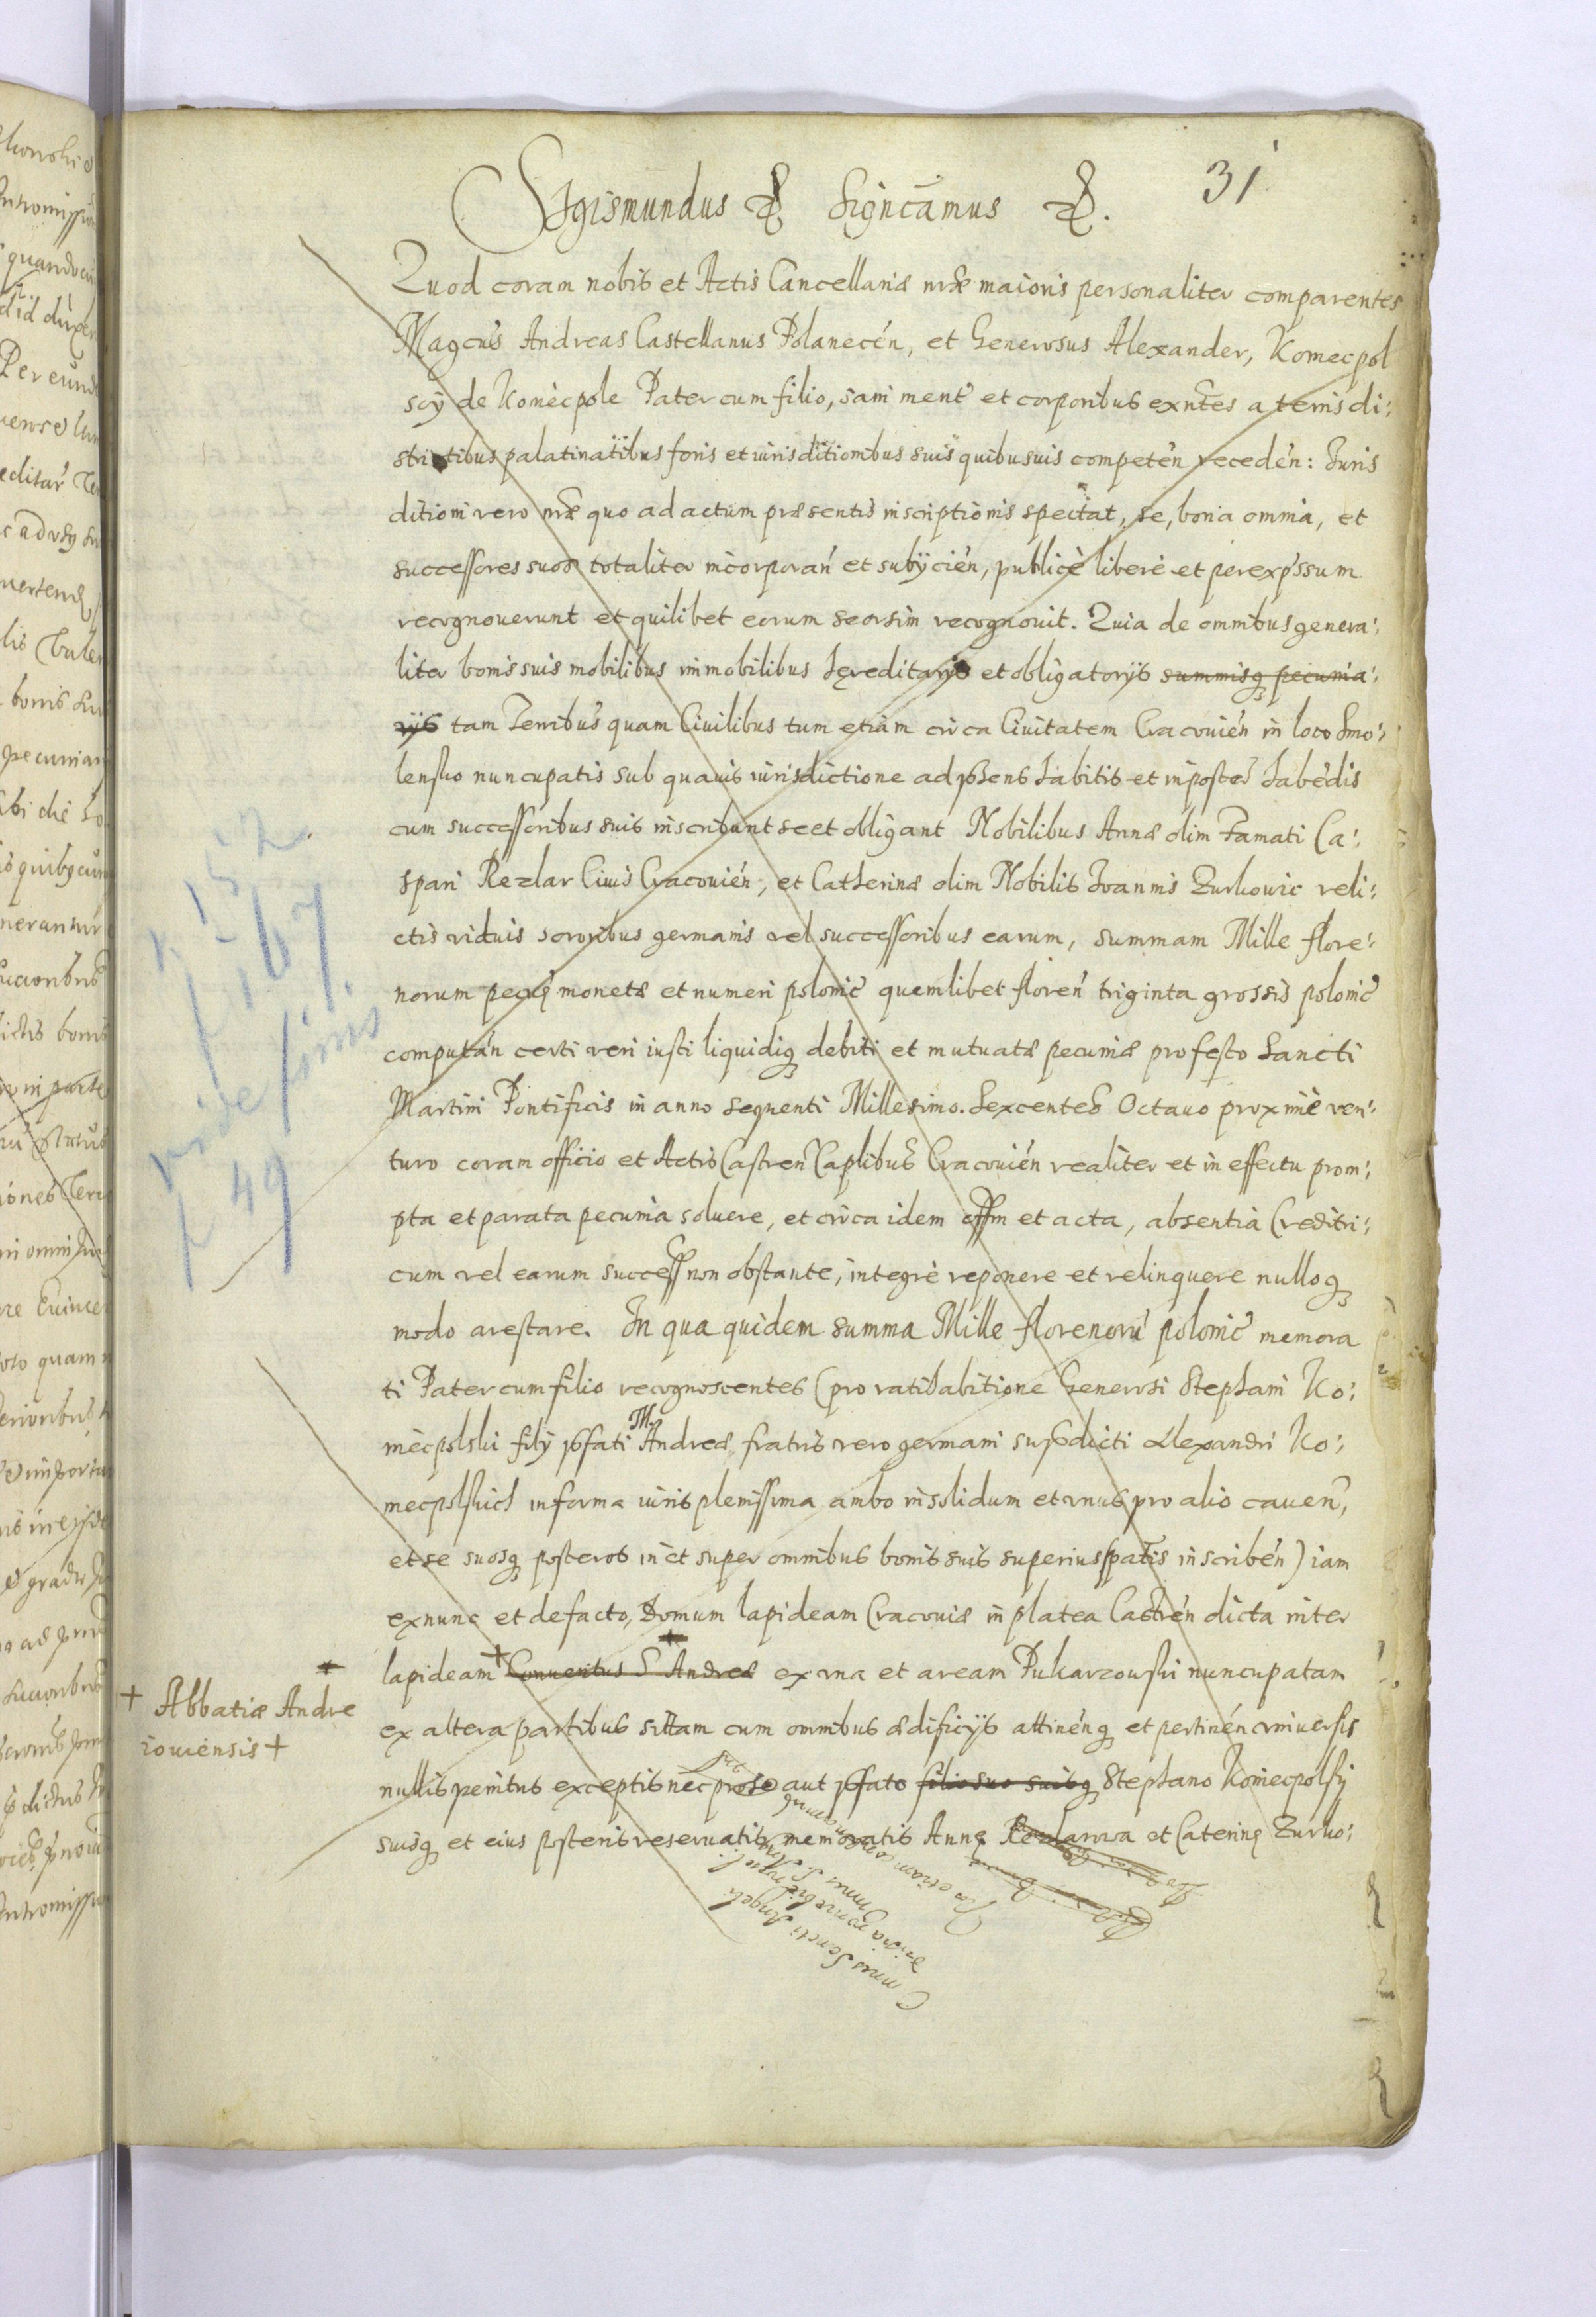 31
Sigismundus Signcamus
Quod coram nobis et Actis Cancellariæ nræ maioris personaliter comparentes
Magcus Andreas Castellanus Polanecen, et Generosus Alexander, Koniecpol
scÿ de Koniecpole Pater cum filio, sani mente et corporibus exntes a terris di:
strictibus palatinatibus foris et iurisditionibus suis quibusuis competen receden: Juris
ditioni vero nræ quo ad actum præsentis inscriptionis spectat, se, bona omnia, et
successores suos totaliter incorporan et subÿcien, publicè liberè et per expssum
recognouerunt et quilibet eorum seorsim recognouit. Quia de omnibus genera:
liter bonis suis mobilibus immobilibus hęreditarÿs et obligatorÿs summisq pecunia:
rÿs tam Terribus quam Ciuilibus tum etiam circa Ciuitatem Cracouien in loco Smo:
lensko nuncupatis sub quauis iurisdictione ad phsens habitis et inposter habedis
cum successoribus suis inscribunt se et obligant Nobilibus Annæ olim Famati Ca:
spari Rezlar Ciuis Cracouien, et Catherinæ olim Nobilis Ioannis Zurkowic reli:
ctis viduis sororibus germanis vel successoribus earum, summam Mille flore:
norum pecuę monetæ et numeri polonic quemlibet floren triginta grossis polonic
computan certi veri iusti liquidiq debiti et mutuatæ pecuniæ pro festo Sancti
Martini Pontificis in anno sequenti Millesimo. Sexcentes Octauo proximè ven:
turo coram officio et Actis Castren Caplibus Cracouien realiter et in effectu prom:
pta et parata pecunia soluere, et circa idem offm et acta, absentia Creditri:
cum vel earum success non obstante, integrè reponere et relinquere nulloq
modo arestare. In qua quidem summa Mille florenoru polonic memora
ti Pater cum filio recognoscentes (pro ratihabitione Generosi Stephani Ko:
niecpolski filÿ pfati M. Andreæ, fratris vero germani supdicti Alexandri Ko:
niecpolskich in forma iuris plenissima ambo insolidum et vnus pro alio cauen,
et se suosq posteros in et super omnibus bonis suis superius spatis inscriben) iam
exnunc et defacto, Domum lapideam Cracouiæ in platea Castren dicta inter
lapideam + Conuentus S Andreæ ex vna et aream Pukarzowski nuncupatam
+ Abbatiæ Andre
iouiensis +
ex altera partibus sittam cum omnibus ædificÿs attinenq et pertinen vniuersis
nullis penitus exceptis nec pro se aut pfato filio suo suisq Stephano Koniecpolsÿ
suisq et eius posteris reseruatis, memoratis Annę Rezlarowa et Caterinę Zurko:
k 152
k 167.
vide
k 49